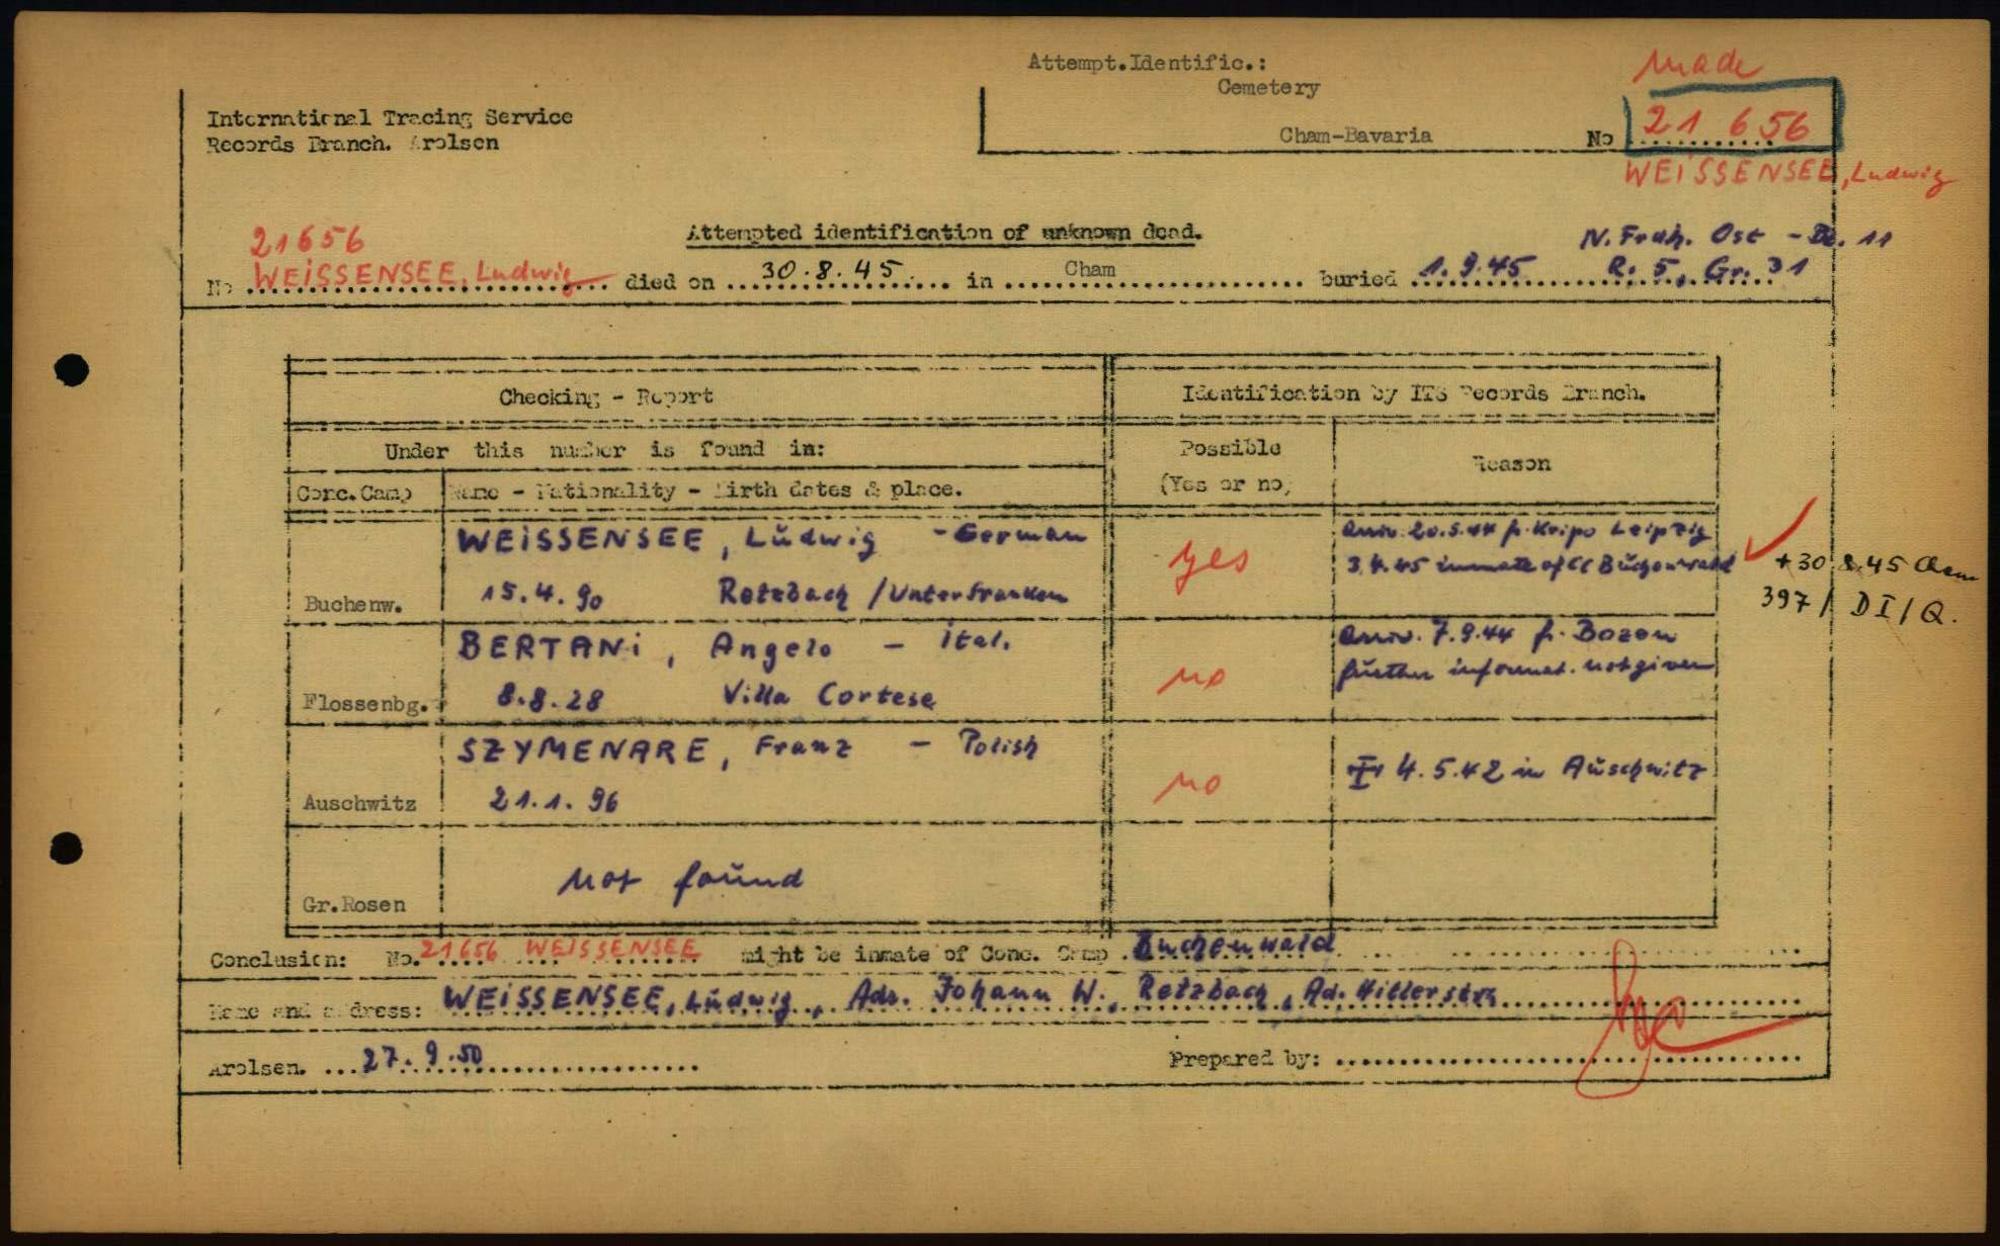 Attempt.Identific.:
Cemetery
Cham-Bavaria
made
No 21 656
WEISSENSEE, Ludwig
International Tracing Service
Records Branch. Arolsen
Attempted identification of unknown dead.
21656
N. Frdh. Ost -
No WEISSENSEE, Ludwig died on 30.8.45. in Cham buried 1.9.45 R. 5, Gr. 31
Checking - Report
Identification by ITS Records Branch.
Under this number is found in:
Possible
(Yes or no)
Reason
Conc.Camp
Name - Nationality - Birth dates & place.
WEISSENSEE, Ludwig - German
Buchenw. 15.4.90 Retzbach / Unterfranken
yes
Arriv. 20.5.44 fr. Kripo Leipzig
3.4.45 inmate of CC Buchenwald
+30 8.45 Cham
397 / D I / Q.
BERTANI, Angelo - Ital.
Flossenbg. 8.8.28 Villa Cortese
no
Arriv. 7.9.44 fr. Bozen
further informat. not given
SZYMENARE, Franz - Polish
Auschwitz 21.1.96
no
4.5.42 in Auschwitz
Gr.Rosen not found
Conclusion: No. 21656 WEISSENSEE might be inmate of Conc. Camp Buchenwald
Name and address: WEISSENSEE, Ludwig, Adr. Johann W., Retzbach, Ad. Hitlerstr
Arolsen. 27.9.50 Prepared by: